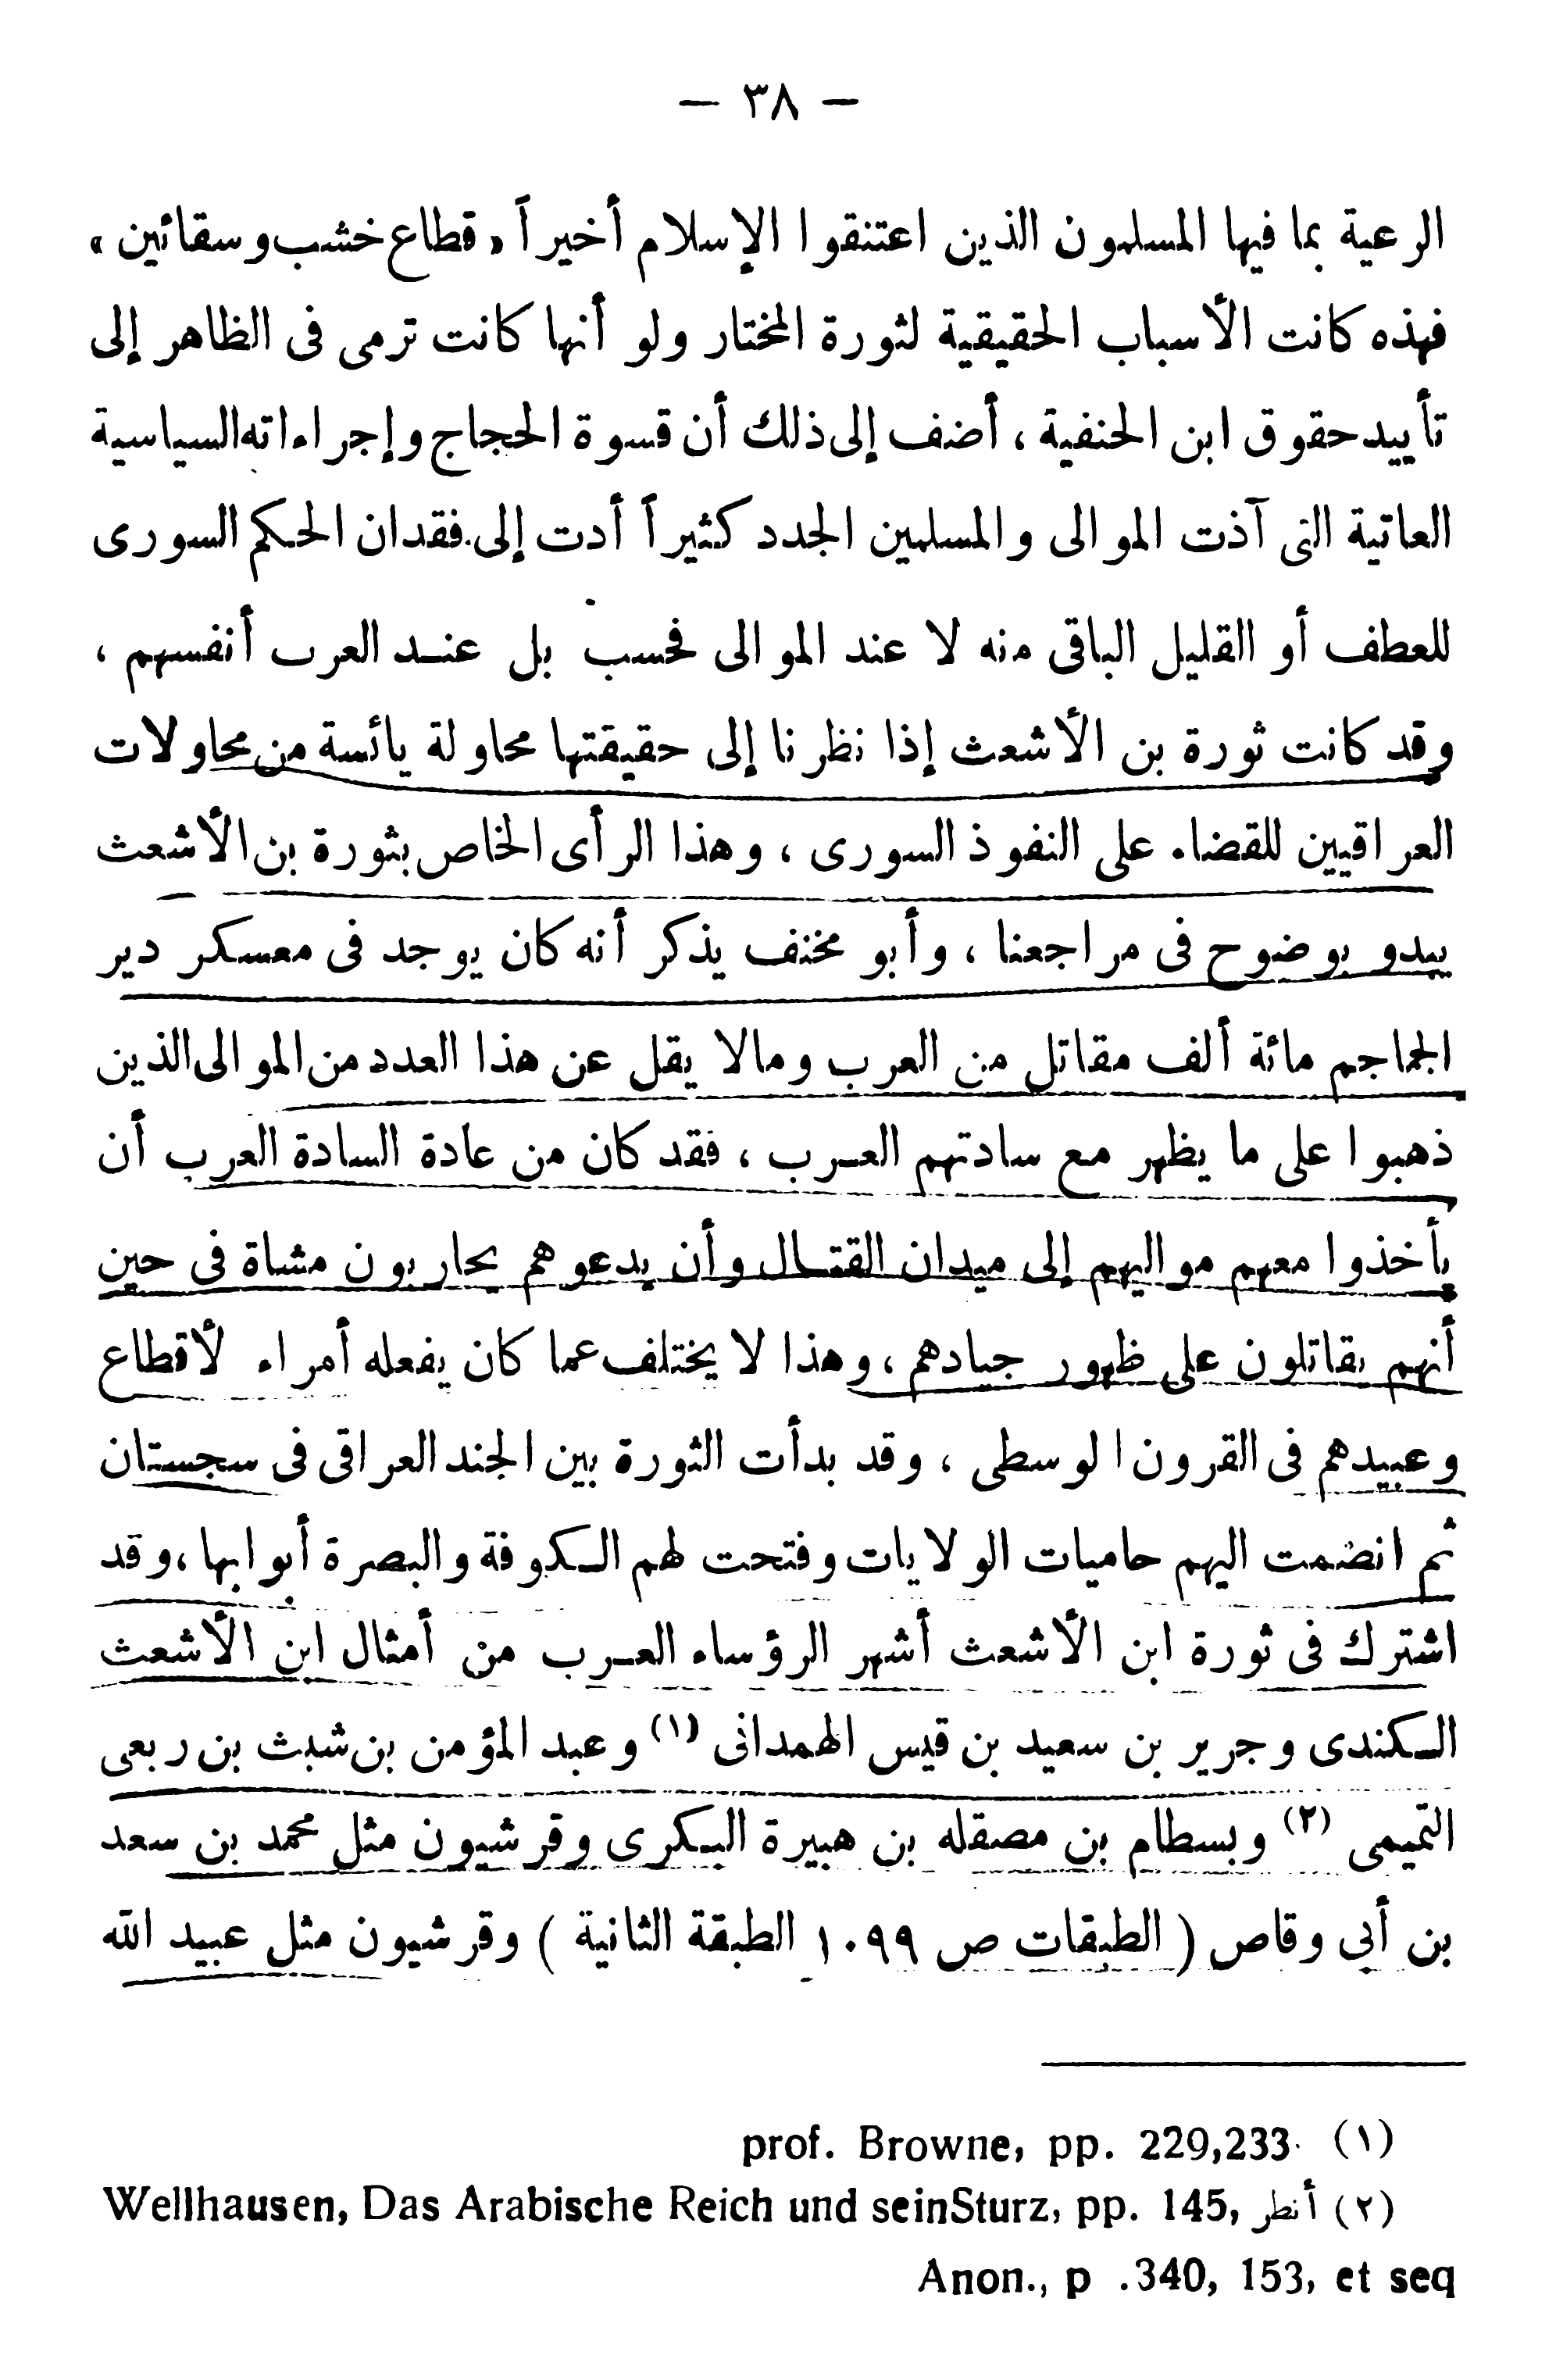 — ٣٨ —
الرعية بما فيها المسلمون الذين اعتنقوا الإسلام أخيراً « قطاع خشب وسقائين »
فهذه كانت الأسباب الحقيقية لثورة المختار ولو أنها كانت ترمى فى الظاهر إلى
تأييد حقوق ابن الحنفية ، أضف إلى ذلك أن قسوة الحجاج وإجراءاته السياسية
العاتية التى آذت الموالى والمسلمين الجدد كثيراً أدت إلى فقدان الحكم السورى
للعطف أو القليل الباقى منه لا عند الموالى فحسب بل عند العرب أنفسهم ،
وقد كانت ثورة بن الأشعث إذا نظرنا إلى حقيقتها محاولة يائسة من محاولات
العراقيين للقضاء على النفوذ السورى ، وهذا الرأى الخاص بثورة بن الأشعث
يبدو بوضوح فى مراجعنا ، وأبو مخنف يذكر أنه كان يوجد فى معسكر دير
الجماجم مائة ألف مقاتل من العرب ومالا يقل عن هذا العدد من الموالى الذين
ذهبوا على ما يظهر مع سادتهم العرب ، فقد كان من عادة السادة العرب أن
يأخذوا معهم مواليهم إلى ميدان القتال وأن يدعوهم يحاربون مشاة فى حين
أنهم يقاتلون على ظهور جيادهم ، وهذا لا يختلف عما كان يفعله أمراء لأقطاع
وعبيدهم فى القرون الوسطى ، وقد بدأت الثورة بين الجند العراقى فى سجستان
ثم انضمت اليهم حاميات الولايات وفتحت لهم الكوفة والبصرة أبوابها ، وقد
اشترك فى ثورة ابن الأشعث أشهر الرؤساء العرب من أمثال ابن الأشعث
الكندى وجرير بن سعيد بن قيس الهمدانى (١) وعبد المؤمن بن شبث بن ربعى
التميمى (٢) وبسطام بن مصقله بن هبيرة البكرى وقرشيون مثل محمد بن سعد
بن أبى وقاص ( الطبقات ص ١٠٩٩ الطبقة الثانية ) وقرشيون مثل عبيد الله
(١) prof. Browne, pp. 229,233
(٢) أنظر Wellhausen, Das Arabische Reich und seinSturz, pp. 145,
Anon., p .340, 153, et seq